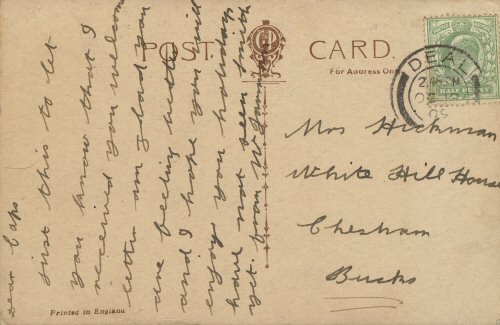 POST CARD.
For Address Only
DEAL
HALF PENNY
Mrs Hickman
White Hill House
Chesham
Bucks
just this to let
you know that I
received you welcome
letter am glad you
are feeling better
and I hope you will
enjoy you holiday
have not been
yet. from
Printed in England